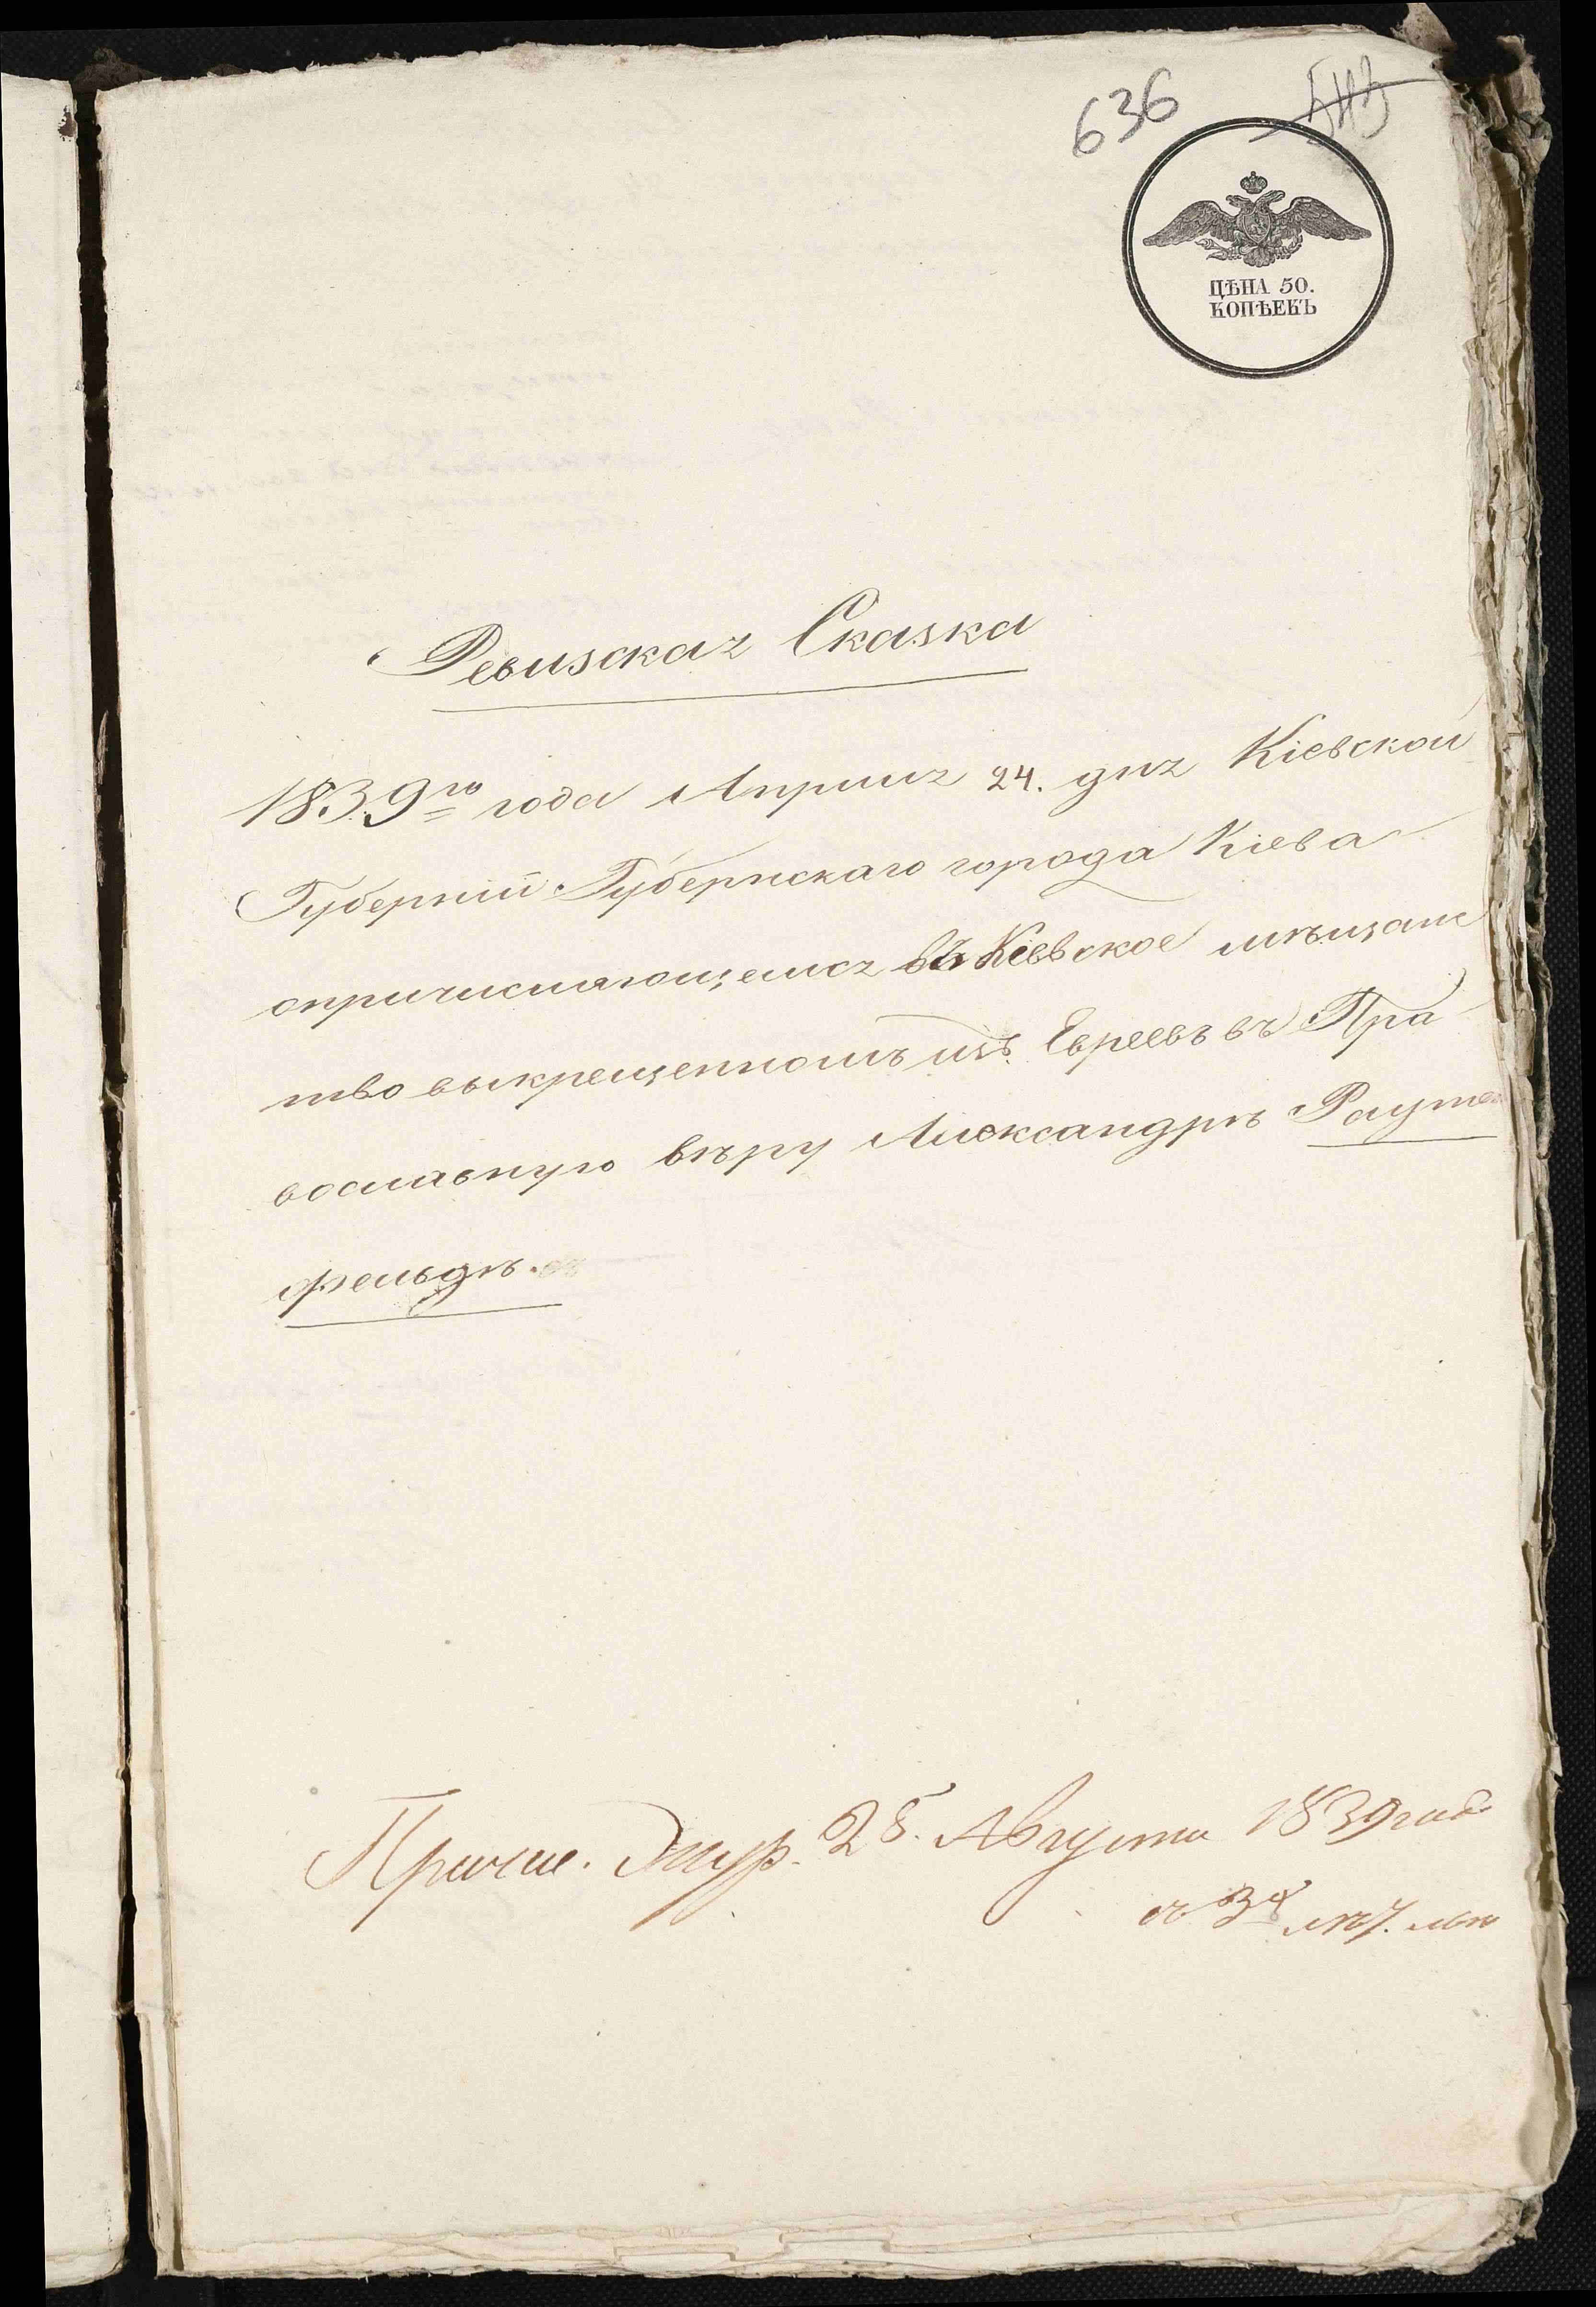 636
ЦѢНА 50.
КОПѢЕКЪ
Ревизская Сказка
1839го года Апрѣля 24. дня Кіевской
Губерніи Губернскаго города Кіева
опричисляющемся въ Кіевское мѣщанс
тво выкрещенномъ изъ Евреевъ въ Пра
вославную вѣру Александрѣ Раутен
фельдѣ.
Причис. Жур. 25. Августа 1839 года
съ 3й